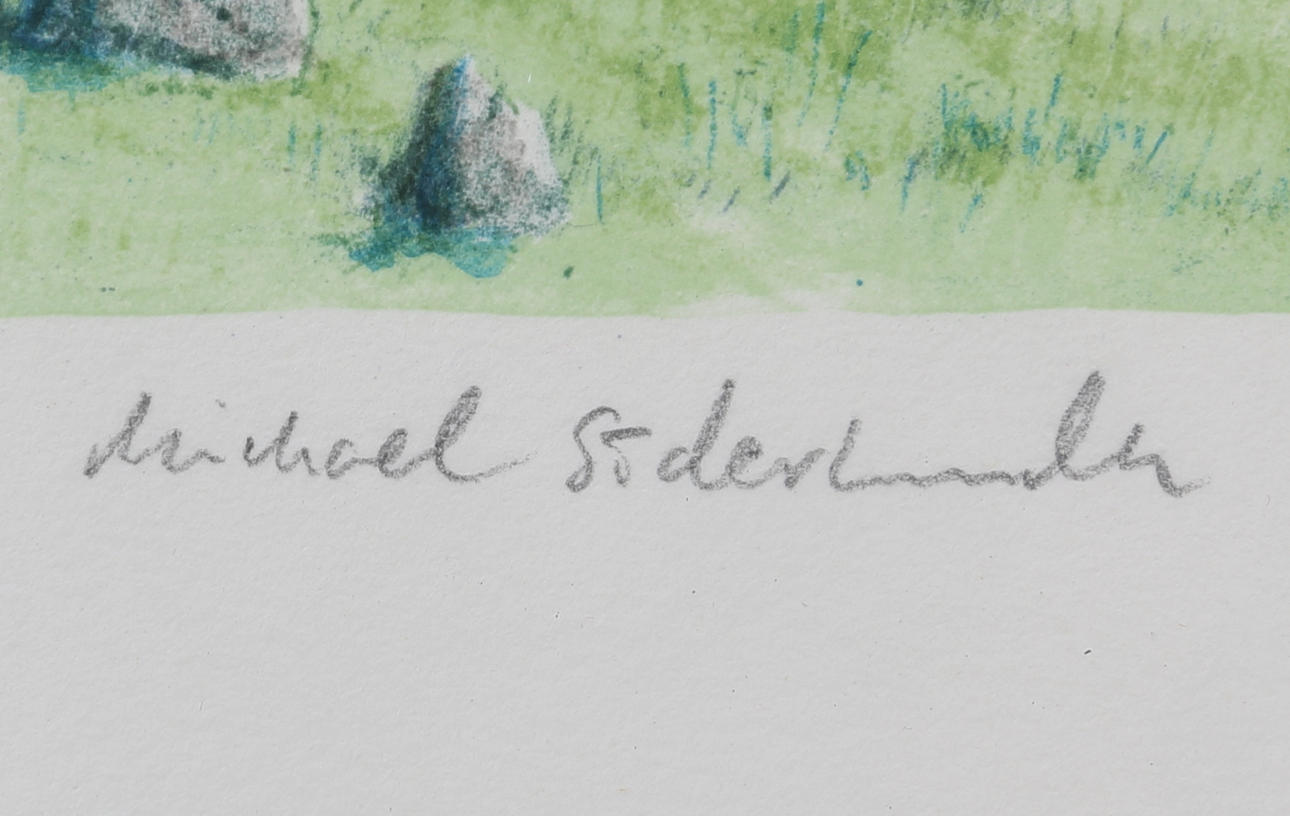 Michael Söderlundh